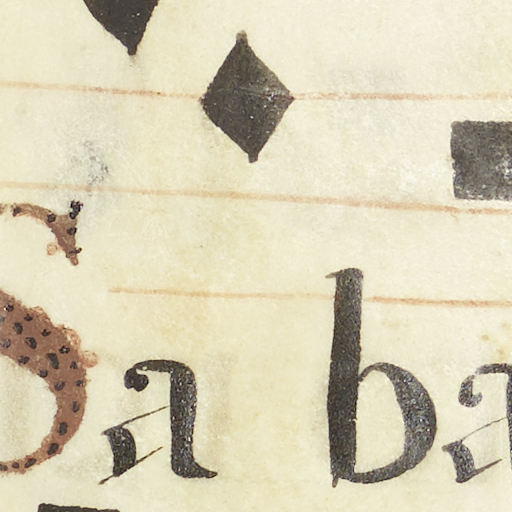 Sa ba